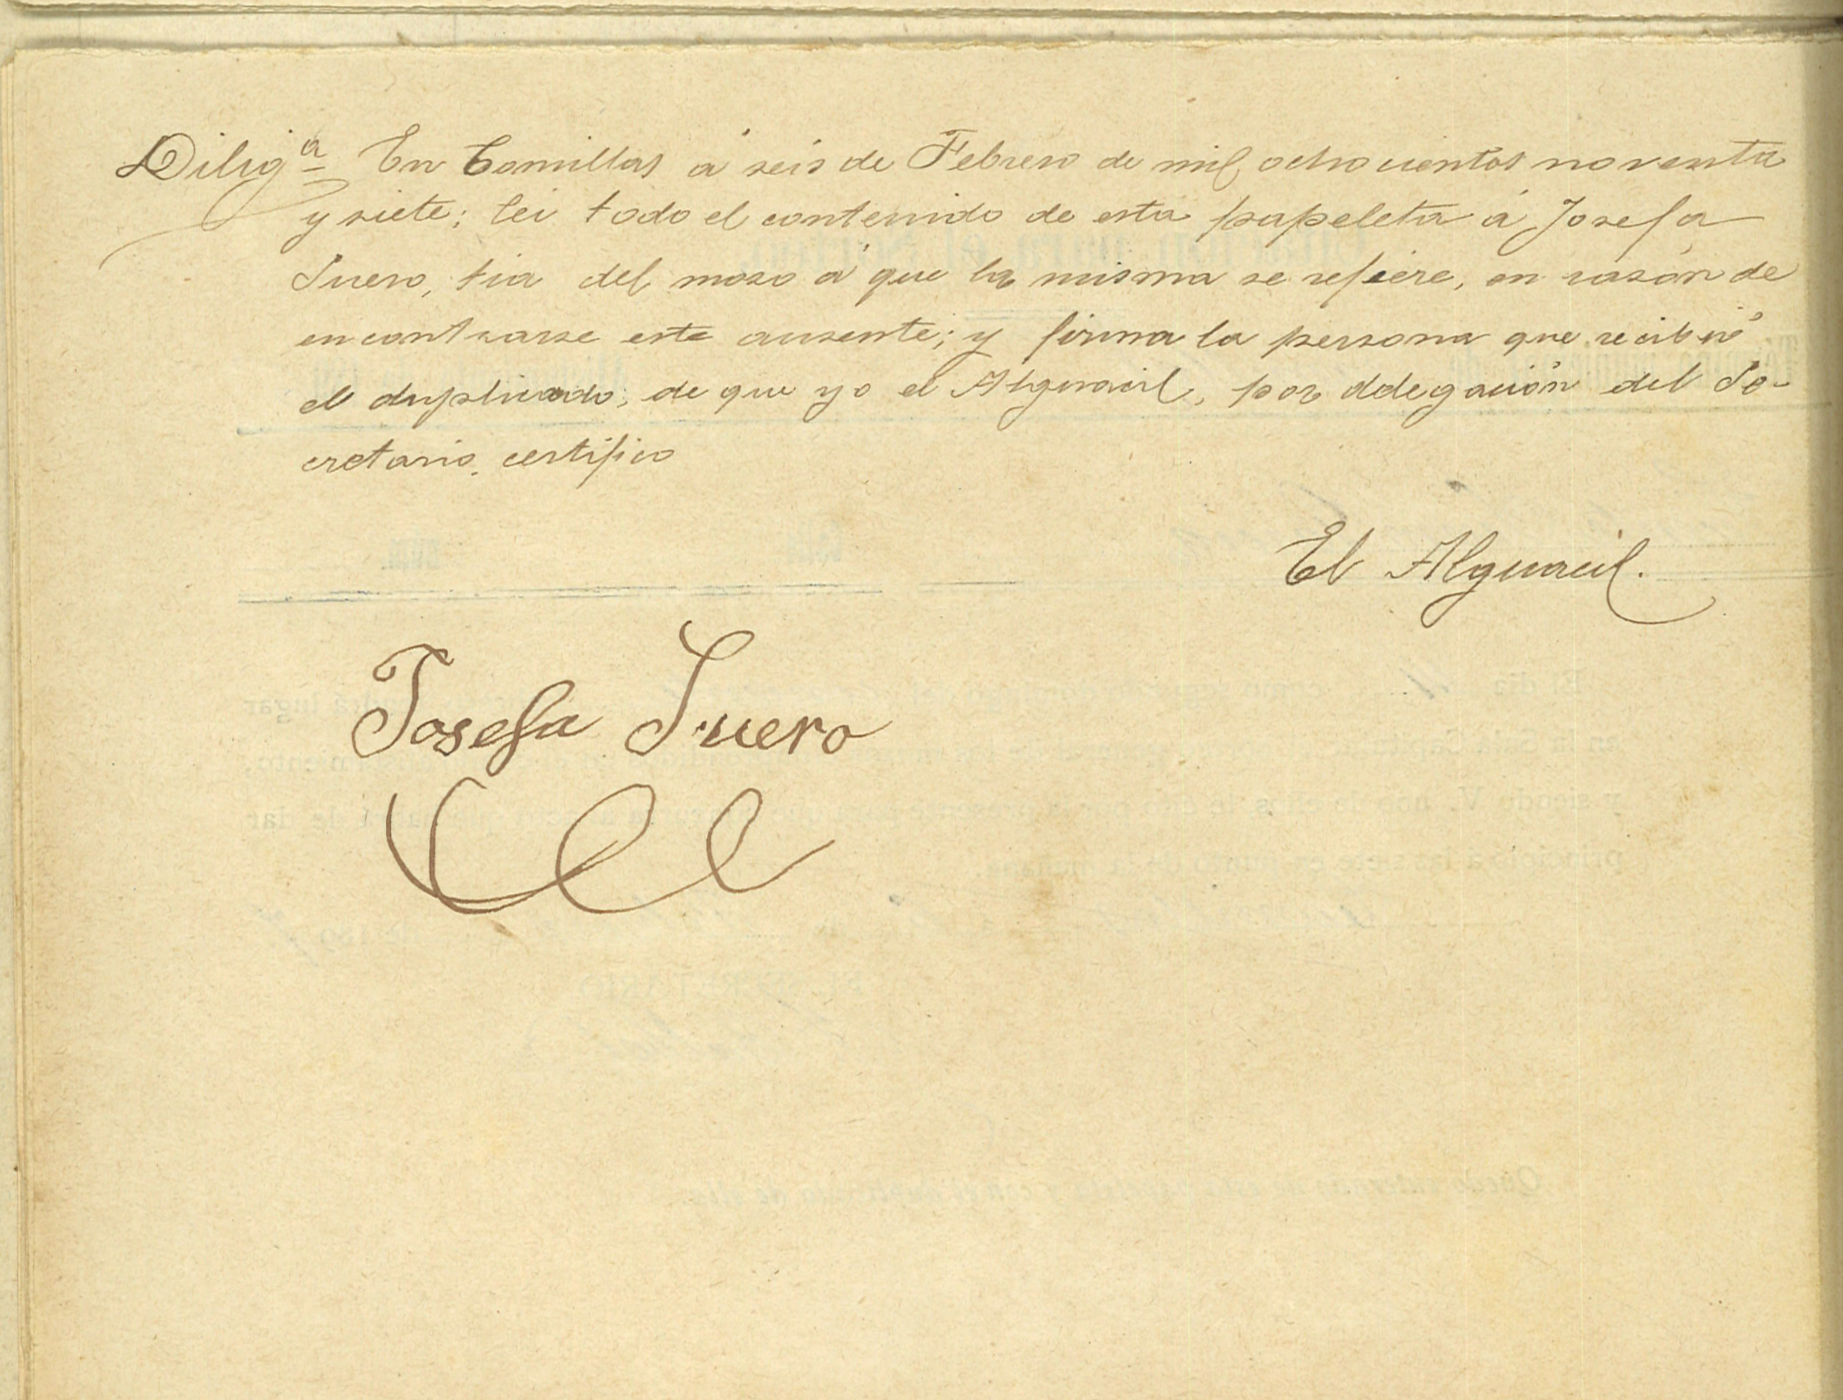 Diligª En Comillas á seis de Febrero de mil ochocientos noventa
y siete; lei todo el contenido de esta papeleta á Josefa
Suero, tia del moso á que la misma se refiere, en rasón de
encontrarse este ausente; y firma la persona que recibió
el duplicado; de que yo el Alguacil, por delegación del Se-
cretario, certifico
El Alguacil.
Josefa Suero